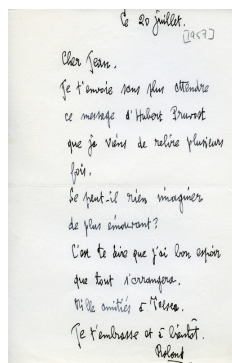 Ce 20 juillet.
[1957]
Cher Jean.
Je t'envoie sans plus attendre
ce message d'Hubert Pruvost
que je viens de relire plusieurs
fois.
Se peut-il rien imaginer
de plus émouvant?
C'est te dire que j'ai bon espoir
que tout s'arrangera.
Mille amitiés à
Je t'embrasse et à bientôt.
Roland